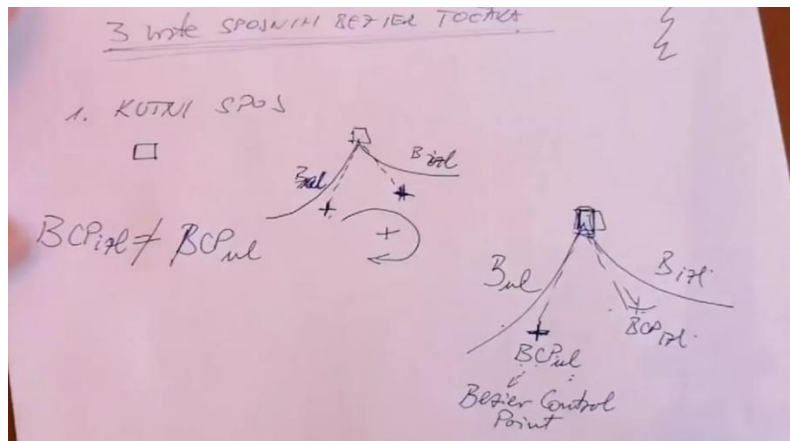 3 vrste SPOJNIH BEZIER TOČAKA
1. KUTNI SPOJ
Bul
Bizl
+
BCPizl ≠ BCPul
Bul
Bizl.
BCPizl.
BCPul
Bezier Control
Point